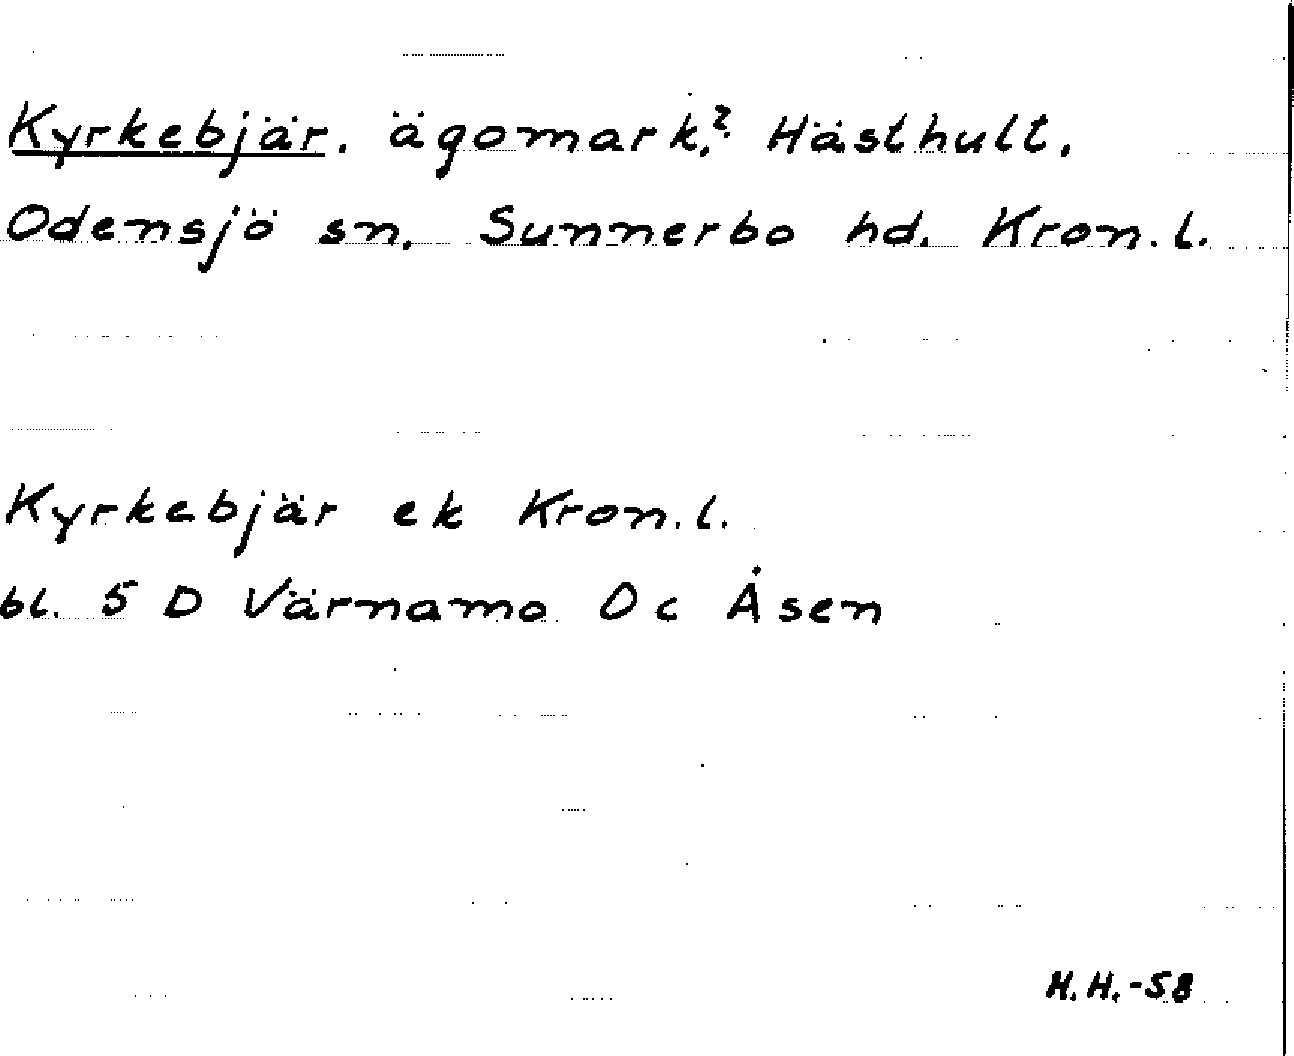 Kyrkebjär. ägomark,? Hästhult,
Odensjö sn. Sunnerbo hd. Kron.l.
Kyrkebjär ek Kron.l.
bl. 5 D Värnamo 0 c Åsen
H.H.-58